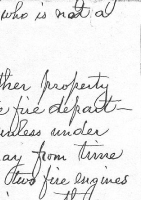 who is not a
ther property
e fire depart-
unless under
ay from time
two fire engines